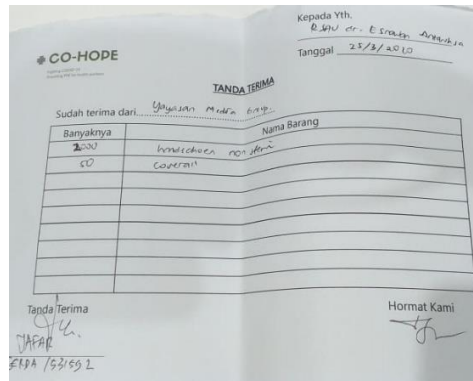 Kepada Yth.
RSAU dr. Esnawan Antariksa
Tanggal 25/3/2020
CO-HOPE
TANDA TERIMA
Sudah terima dari Yayasan Media Group.
Banyaknya Nama Barang
2000 handschoen non steril
50 coverall
Tanda Terima Hormat Kami
JAFAR
SERDA /